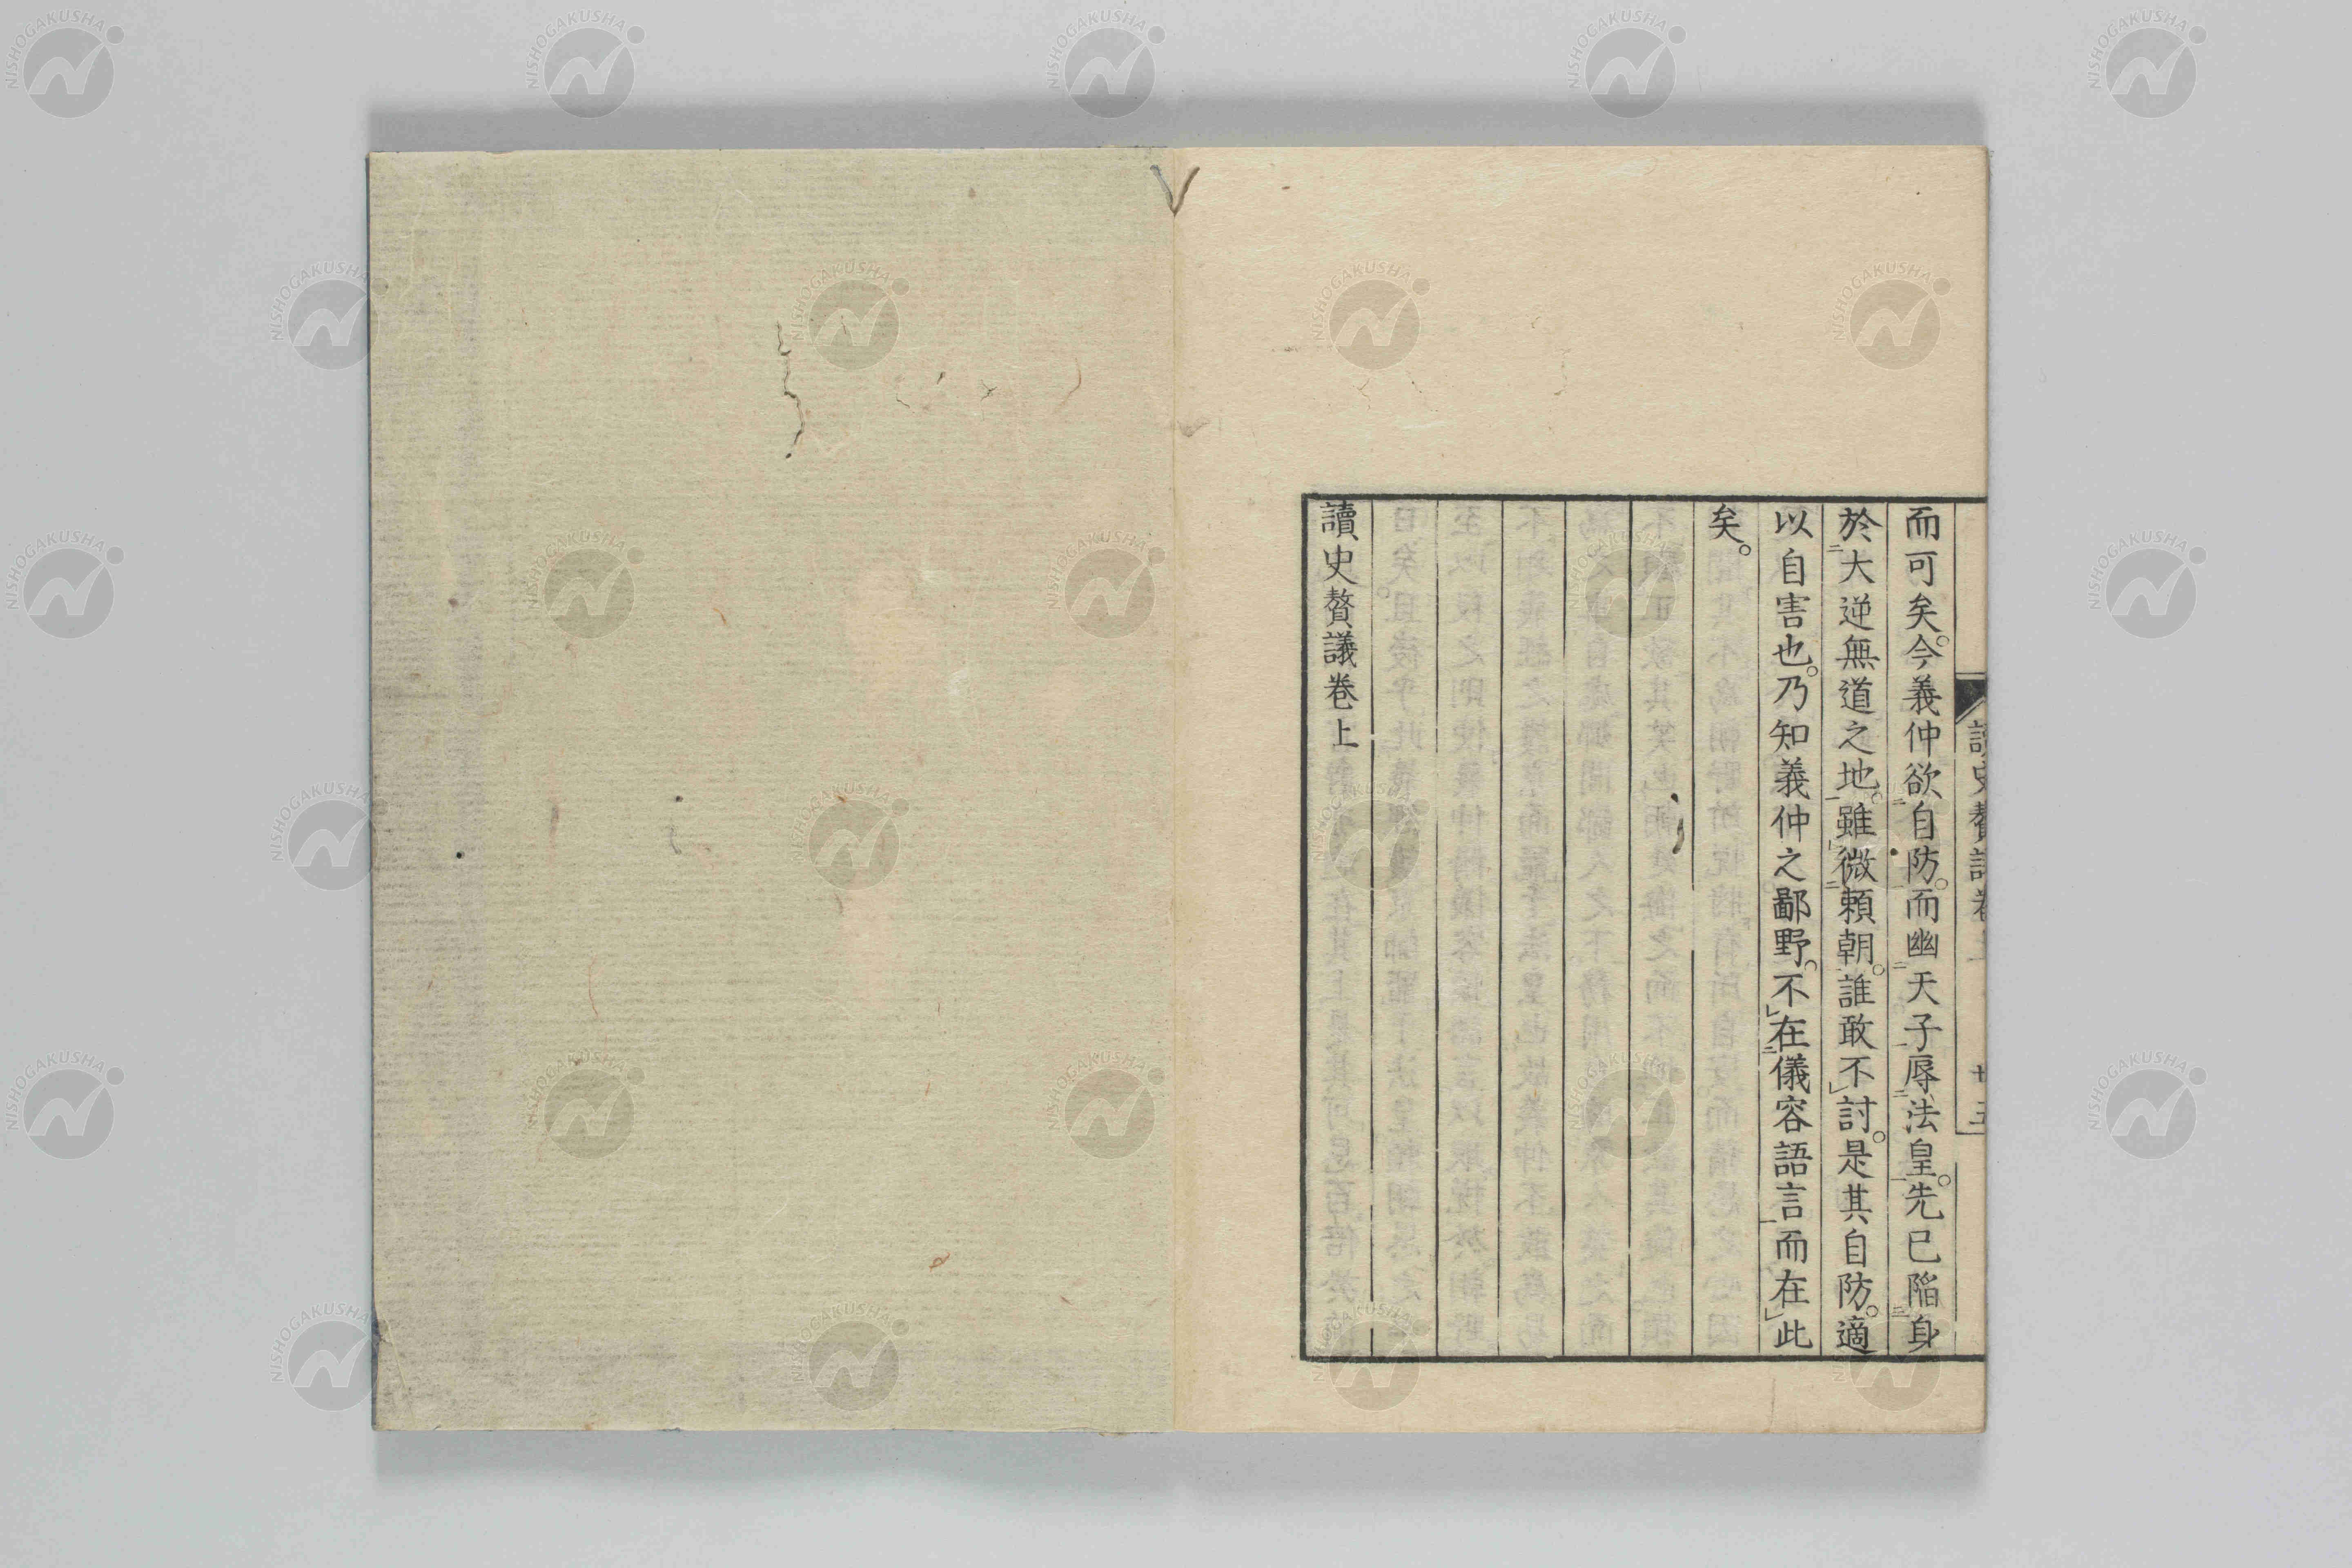 讀史贅議卷上
而可矣。今義仲欲自防。而幽天子辱法皇。先已陷身
於大逆無道之地。雖微賴朝。誰敢不討。是其自防。適
以自害也。乃知義仲之鄙野。不在儀容語言而在此
矣。
讀史贅議卷上
NISHOGAKUSHA